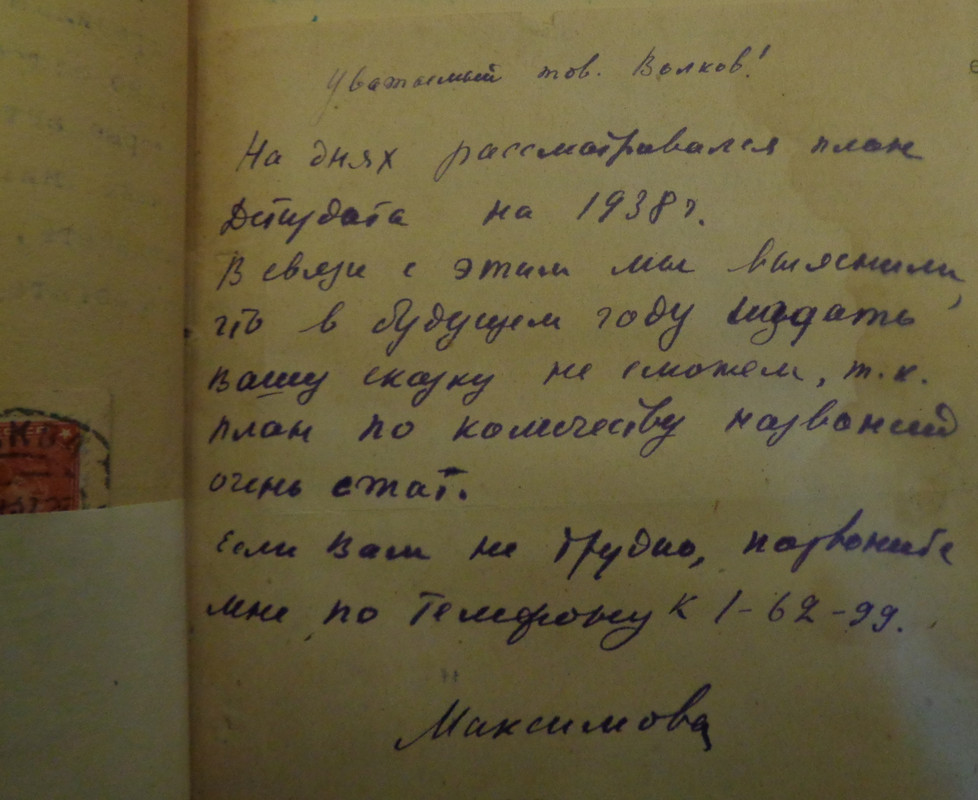 Уважаемый тов. Волков!
На днях рассматривался план
Детиздата на 1938 г.
В связи с этим мы выяснили,
что в будущем году издать
вашу сказку не сможем, т.к.
план по количеству названий
очень сжат.
Если Вам не трудно, позвоните
мне по телефону К 1-62-99.
Максимова